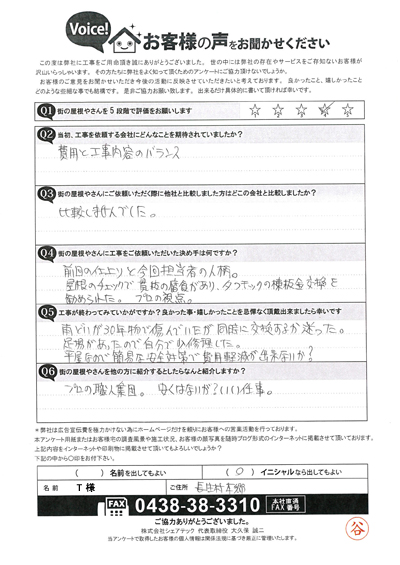 Voice!
お客様の声をお聞かせください
この度は弊社に工事をご用命頂き誠にありがとうございました。世の中には弊社の存在やサービスをご存知ないお客様が
沢山いらっしゃいます。その方たちに弊社をよく知って頂くためのアンケートにご協力頂けないでしょうか。
お客様のご意見をお聞かせいただき今後の活動に反映させていただきたいと考えております。良かったこと、嬉しかったこと
どのような些細な事でも結構です。是非ご協力お願い致します。出来るだけ具体的に書いて頂ければ幸いです。
Q1 街の屋根やさんを5段階で評価をお願いします ☆ ☆ ☆ ☆ ☆
Q2 当初、工事を依頼する会社にどんなことを期待されていましたか?
費用と工事内容のバランス
Q3 街の屋根やさんにご依頼いただく際に他社と比較しました方はどこの会社と比較しましたか?
比較しませんでした。
Q4 街の屋根やさんに工事をご依頼いただいた決め手は何ですか?
前回の仕上りと今回担当者の人柄。
屋根のチェックで貫板の腐食があり、タフモックの棟板金交換を
勧められた。プロの視点。
Q5 工事が終わってみていかがですか?良かった事・嬉しかったことを忌憚なく頂戴出来ましたら幸いです
雨どいが30年物で傷んでいたが同時に交換するか迷った。
足場があったので自分で修理した。
平屋なので簡易な安全対策で費用軽減が出来ないか?
Q6 街の屋根やさんを他の方に紹介するとしたらなんと紹介しますか?
プロの職人集団。安くはないが?いい仕事。
*弊社は広告宣伝費を極力かけない為にホームページだけを頼りにお客様への営業活動を行っております。
本アンケート用紙またはお客様宅の調査風景や施工状況、お客様の顔写真を随時ブログ形式のインターネットに掲載させて頂いております。
上記内容をインターネットや印刷物に掲載させて頂いてもよろしいでしょうか?
下記の中から〇印をお付下さい。
( )名前を出してもよい (○)イニシャルなら出してもよい
名前 T様 ご住所 長生村本郷
FAX 0438-38-3310 本社直通 FAX番号
ご協力ありがとうございました。
株式会社シェアテック 代表取締役 大久保 誠二
当アンケートで取得したお客様の個人情報は関係法規に基づき厳正に管理いたします。
谷